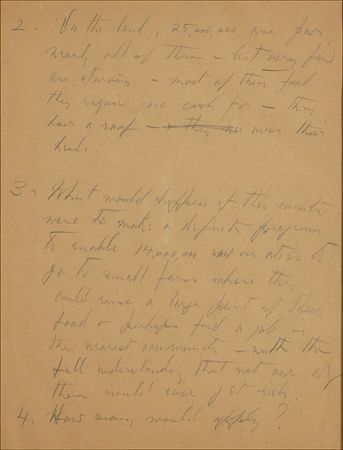 2. On the land, 25,000,000 are poor
nearly all of them - but very few
are starving - most of their food
they require no cash for - they
have a roof - over their
heads.
3. What would happen if this country
were to make a definite program
to enable 14,000,000 now on to
go to small farms where they
could raise a large part of their
food & perhaps find a job in
the nearest community - with the
full understanding that not one of
them would ever get rich.
4. How many would apply?